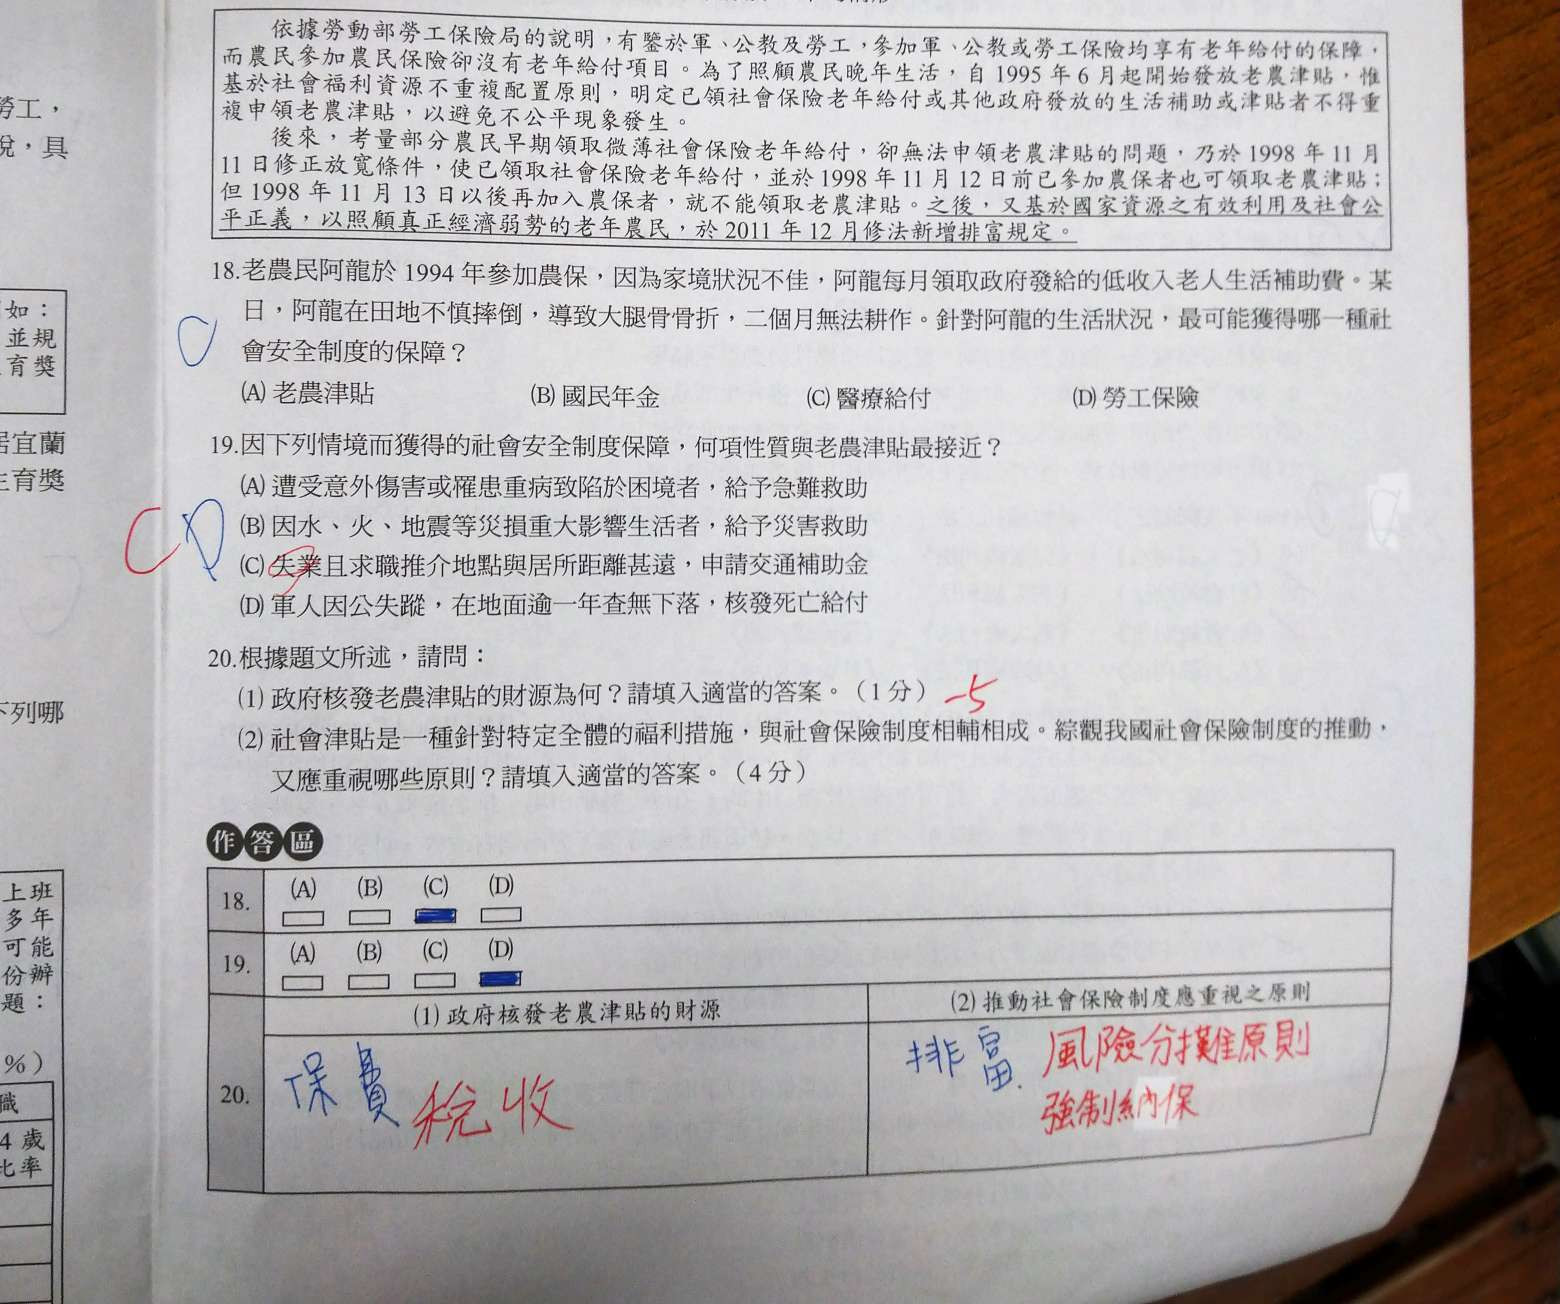 依據勞動部勞工保險局的說明，有鑒於軍、公教及勞工，參加軍、公教或勞工保險均享有老年給付的保障，
而農民參加農民保險卻沒有老年給付項目。為了照顧農民晚年生活，自 1995 年 6 月起開始發放老農津貼，惟
基於社會福利資源不重複配置原則，明定已領社會保險老年給付或其他政府發放的生活補助或津貼者不得重
複申領老農津貼，以避免不公平現象發生。
後來，考量部分農民早期領取微薄社會保險老年給付，卻無法申領老農津貼的問題，乃於 1998 年 11 月
11 日修正放寬條件，使已領取社會保險老年給付，並於 1998 年 11 月 12 日前已參加農保者也可領取老農津貼；
但 1998 年 11 月 13 日以後再加入農保者，就不能領取老農津貼。之後，又基於國家資源之有效利用及社會公
平正義，以照顧真正經濟弱勢的老年農民，於 2011 年 12 月修法新增排富規定。
18.老農民阿龍於 1994 年參加農保，因為家境狀況不佳，阿龍每月領取政府發給的低收入老人生活補助費。某
日，阿龍在田地不慎摔倒，導致大腿骨骨折，二個月無法耕作。針對阿龍的生活狀況，最可能獲得哪一種社
會安全制度的保障？
(A) 老農津貼 (B) 國民年金 (C) 醫療給付 (D) 勞工保險
19.因下列情境而獲得的社會安全制度保障，何項性質與老農津貼最接近？
(A) 遭受意外傷害或罹患重病致陷於困境者，給予急難救助
C D
(B) 因水、火、地震等災損重大影響生活者，給予災害救助
(C) 失業且求職推介地點與居所距離甚遠，申請交通補助金
(D) 軍人因公失蹤，在地面逾一年查無下落，核發死亡給付
20.根據題文所述，請問：
(1) 政府核發老農津貼的財源為何？請填入適當的答案。（1 分） -5
(2) 社會津貼是一種針對特定全體的福利措施，與社會保險制度相輔相成。綜觀我國社會保險制度的推動，
又應重視哪些原則？請填入適當的答案。（4 分）
作答區
18. (A) (B) (C) (D)
19. (A) (B) (C) (D)
20. (1) 政府核發老農津貼的財源 (2) 推動社會保險制度應重視之原則
保費 稅收
排富 風險分攤原則
強制納保
勞工，
說，具
如：
並規
育獎
居宜蘭
生育獎
下列哪
上班
多年
可能
份辦
題：
%）
職
4 歲
比率